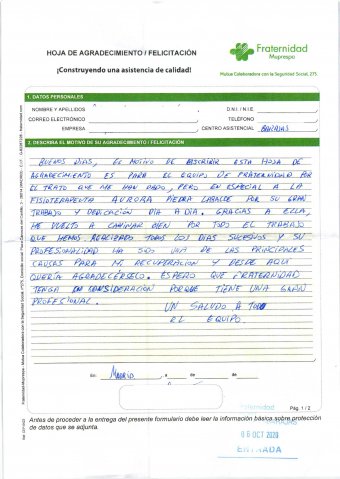 HOJA DE AGRADECIMIENTO / FELICITACIÓN
¡Construyendo una asistencia de calidad!
Fraternidad
Muprespa
Mutua Colaboradora con la Seguridad Social, 275
1. DATOS PERSONALES
NOMBRE Y APELLIDOS
D.N.I. / N.I.E.
CORREO ELECTRÓNICO
TELÉFONO
EMPRESA
CENTRO ASISTENCIAL
2. DESCRIBA EL MOTIVO DE SU AGRADECIMIENTO / FELICITACIÓN
BUENOS DÍAS, EL MOTIVO DE ESCRIBIR ESTA HOJA DE
AGRADECIMIENTO ES PARA EL EQUIPO DE FRATERNIDAD POR
EL TRATO QUE ME HAN DADO, PERO EN ESPECIAL A LA
FISIOTERAPEUTA AURORA PIEDRA POR SU GRAN
TRABAJO Y DEDICACIÓN DIA A DIA. GRACIAS A ELLA,
HE VUELTO A CAMINAR BIEN POR TODO EL TRABAJO
QUE HEMOS REALIZADO TODOS LOS DIAS Y SU
PROFESIONALIDAD HA SIDO UNA DE LAS PRINCIPALES
CAUSAS PARA MI RECUPERACIÓN Y DESDE AQUI
QUERÍA AGRADECÉRSELO. ESPERO QUE FRATERNIDAD
TENGA EN CONSIDERACIÓN PORQUE TIENE UNA GRAN
PROFESIONAL.
UN SALUDO A TODO
EL EQUIPO.
En: MADRID
Pág. 1 / 2
Antes de proceder a la entrega del presente formulario debe leer la información básica sobre protección
de datos que se adjunta.
06 OCT 2020
ENTRADA